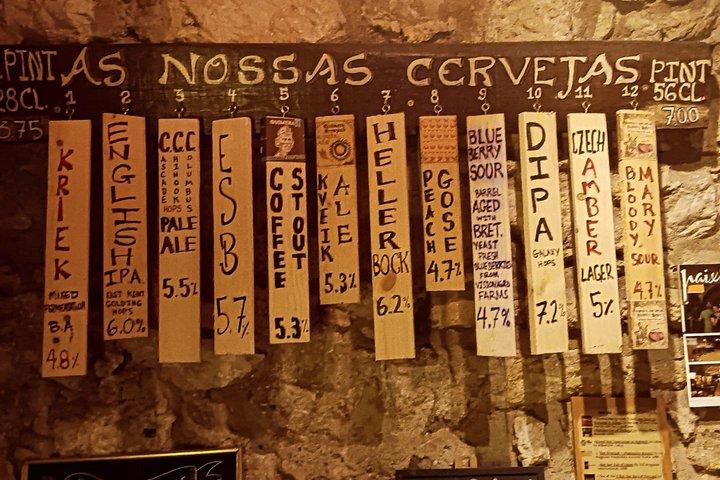 .PINT
AS NOSSAS CERVEJAS
PINT
28CL.
56CL.
3.75
7.00
1
KRIEK
MIXED
FERMENTATION
B.A.
4.8%
2
ENGLISH
IPA
EAST KENT
GOLDING
HOPS
6.0%
3
C.C.C
CASCADE
CHINOOK
COLUMBUS
HOPS
PALE
ALE
5.5%
4
ESB
5.7%
5
COFFEE
STOUT
5.3%
6
KVEIK
ALE
5.3%
7
HELLER
BOCK
6.2%
8
PEACH
GOSE
4.7%
9
BLUE
BERRY
SOUR
BARREL
AGED
WITH
BRET.
YEAST
FRESH
BLUEBERRIES
FROM
FARMS
4.7%
10
DIPA
GALAXY
HOPS
7.2%
11
CZECH
AMBER
LAGER
5%
12
BLOODY
MARY
SOUR
4.7%